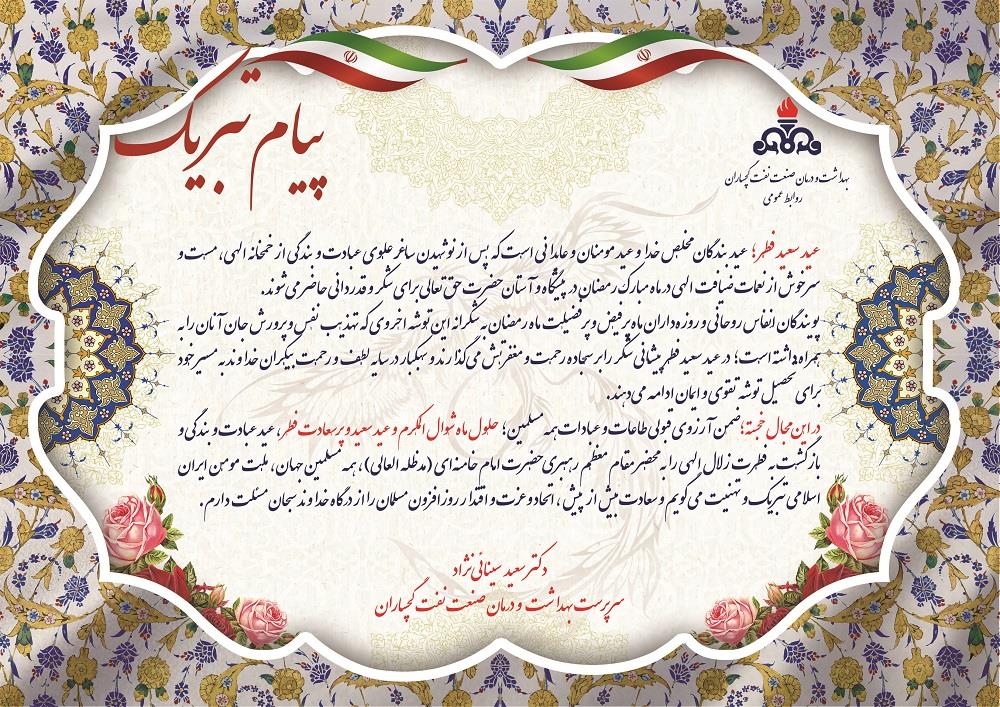 پیام تبریک
بهداشت و درمان صنعت نفت گچساران
روابط عمومی
عید سعید فطر؛ عید بندگان مخلص خدا و عید مومنان و عابدانی است که پس از نوشیدن ساغر علوی عبادت و بندگی از خمخانه الهی، مست و
سرخوش از نعمات ضیافت الهی در ماه مبارک رمضان در پیشگاه و آستان حضرت حق تعالی برای شکر و قدردانی حاضر می شوند.
پویندگان انفاس روحانی و روزه داران ماه پر فیض و پر فضیلت ماه رمضان به شکرانه این توشه اخروی که تهذیب نفس و پرورش جان آنان را به
همراه داشته است؛ در عید سعید فطر پیشانی شکر را بر سجاده رحمت و مغفرتش می گذارند و سبکبار در سایه لطف و رحمت بیکران خداوند به مسیر خود
برای تحصیل توشه تقوی و ایمان ادامه می دهند.
در این مجال خجسته؛ ضمن آرزوی قبولی طاعات و عبادات همه مسلمین؛ حلول ماه شوال المکرم و عید سعید و پر سعادت فطر، عید عبادت و بندگی و
بازگشت به فطرت زلال الهی را به محضر مقام معظم رهبری حضرت امام خامنه ای (مدظله العالی)، همه مسلمین جهان، ملت مومن ایران
اسلامی تبریک و تهنیت می گویم و سعادت بیش از پیش، اتحاد و عزت و اقتدار روز افزون مسلمانان را از درگاه خداوند سبحان مسئلت دارم.
دکتر سعید سینائی نژاد
سرپرست بهداشت و درمان صنعت نفت گچساران